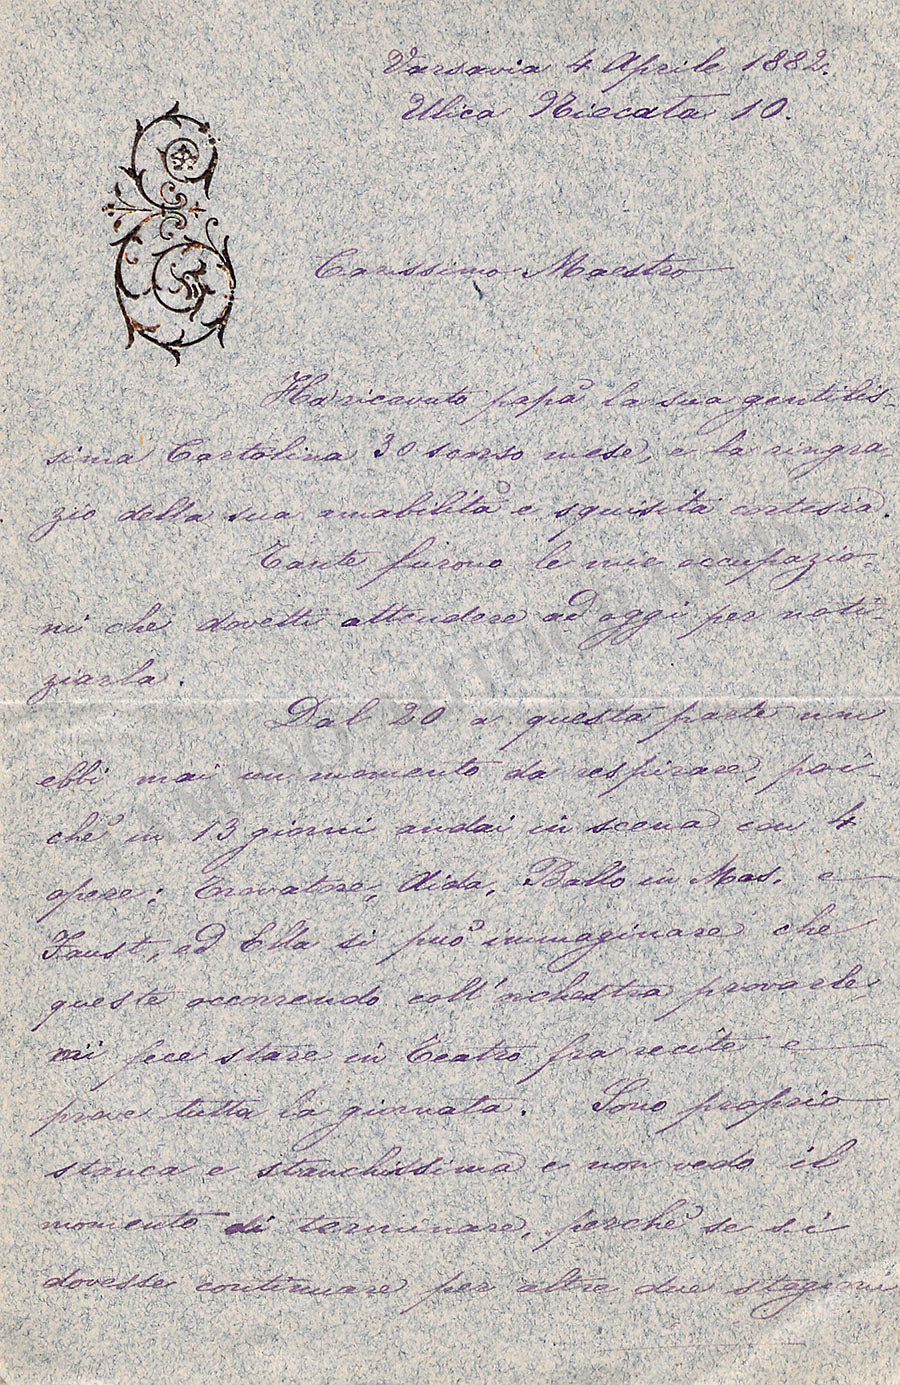 Varsavia 4 Aprile 1882.
Ulica Niecata 10.
Carissimo Maestro
Ha ricevuto papà la sua gentilis-
sima Cartolina 30 scorso mese, e la ringra-
zio della sua amabilità e squisita cortesia.
Tante furono le mie occupazio-
ni che dovetti attendere ad oggi per noti-
ziarla.
Dal 20 a questa parte non
ebbi mai un momento da respirare, poi-
chè in 13 giorni andai in scena con 4
opere: Trovatore, Aida, Ballo in Mas. e
Faust, ed Ella si può immaginare che
queste occorrendo coll'orchestra provarle,
mi fece stare in Teatro fra recite e
prove tutta la giornata. Sono proprio
stanca e stanchissima e non vedo il
momento di terminare, perchè se si
dovesse continuare per altre due stagioni